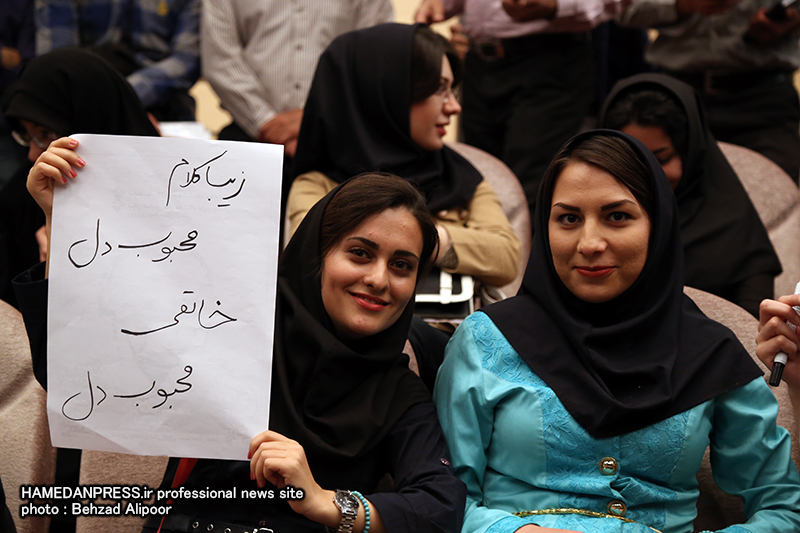 زیبا کلام
محبوب دل
خاتمی
محبوب دل
HAMEDANPRESS.ir professional news site
photo : Behzad Alipoor